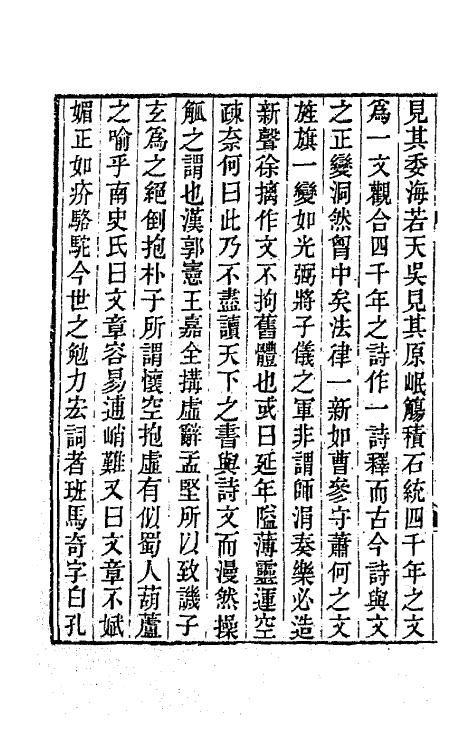 見其委海若天吳見其原岷觴積石統四千年之文
爲一文觀合四千年之詩作一詩釋而古今詩與文
之正變洞然胷中矣法律一新如曹參守蕭何之文
旌旗一變如光弼將子儀之軍非謂師涓奏樂必造
新聲徐摛作文不拘舊體也或曰延年隘薄靈運空
疎奈何曰此乃不盡讀天下之書與詩文而漫然操
觚之謂也漢郭憲王嘉全搆虛辭孟堅所以致譏子
玄爲之絕倒抱朴子所謂懷空抱虛有似蜀人葫蘆
之喻乎南史氏曰文章容易逋峭難又曰文章不娬
媚正如疥駱駝今世之勉力宏詞者班馬奇字白孔